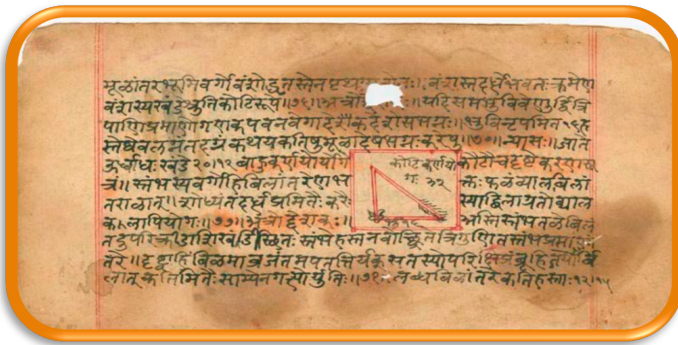 मूळांतरभूमिवर्गोवंशोद्धृतस्तेनपृथग वंशस्तदर्धेभवतःक्रमेण
वंशस्यखंडेश्रुतिकोटिरूपे॥७६॥अत्रो यदिसमभुविवेणुर्द्वित्रि
पाणिप्रमाणोगणकपवनवेगादेकदेशेसभग्नः॥भुविनृपमितह
स्तेष्वंगलग्नंतदग्रंकथयकतिषुमूळादेषभग्नःकरेषु॥७०॥न्यासः॥जाते
ऊर्ध्वाधःखंडे२०।१२बाहुकर्णयोयोगे कोटिकर्णयो कोटौचदृष्टेकरणसू
त्रं॥स्तंभस्यवर्गोहिबिलांतरेणभ गः ३२ क्तःफलंव्यालबिलां
तराळात्॥शोध्यंतदर्धप्रमितैःकरैः स्याद्बिलाग्रतोव्याल
कलापियोगः॥७७॥अत्रोद्देशकः॥ अस्तिस्तंभतळेबिलं
तदुपरिक्रीडाशिखंडीस्थितःस्तंभेहस्तनवोच्छ्रितेत्रिगुणितस्तंभप्रमाणां
तरे॥दृष्ट्वाहिंबिळमाव्रजंतमपतत्तिर्यक्सतस्योपरिक्षिप्रंब्रूहितयोर्बि
लात्कतिमितैःसाम्येनगत्योर्युतिः॥७८॥लब्धबिळांतरेकतिहस्ताः१२।१५